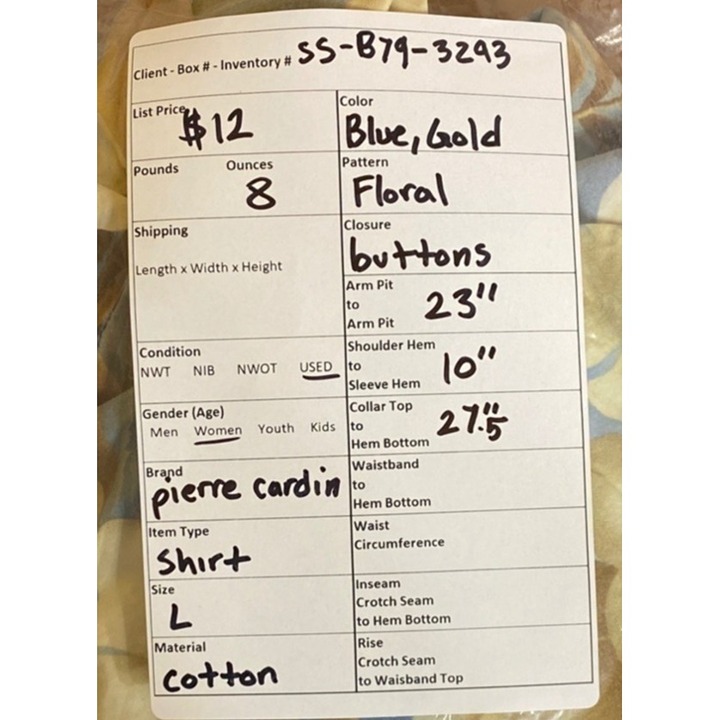 Client - Box # - Inventory # SS-B79-3293
List Price $12
Color
Blue, Gold
Pounds Ounces
8
Pattern
Floral
Shipping
Length x Width x Height
Closure
buttons
Arm Pit
to
Arm Pit
23"
Condition
NWT NIB NWOT USED
Shoulder Hem
to
Sleeve Hem
10"
Gender (Age)
Men Women Youth Kids
Collar Top
to
Hem Bottom
27.5"
Brand
pierre cardin
Waistband
to
Hem Bottom
Item Type
Shirt
Waist
Circumference
Size
L
Inseam
Crotch Seam
to Hem Bottom
Material
cotton
Rise
Crotch Seam
to Waisband Top